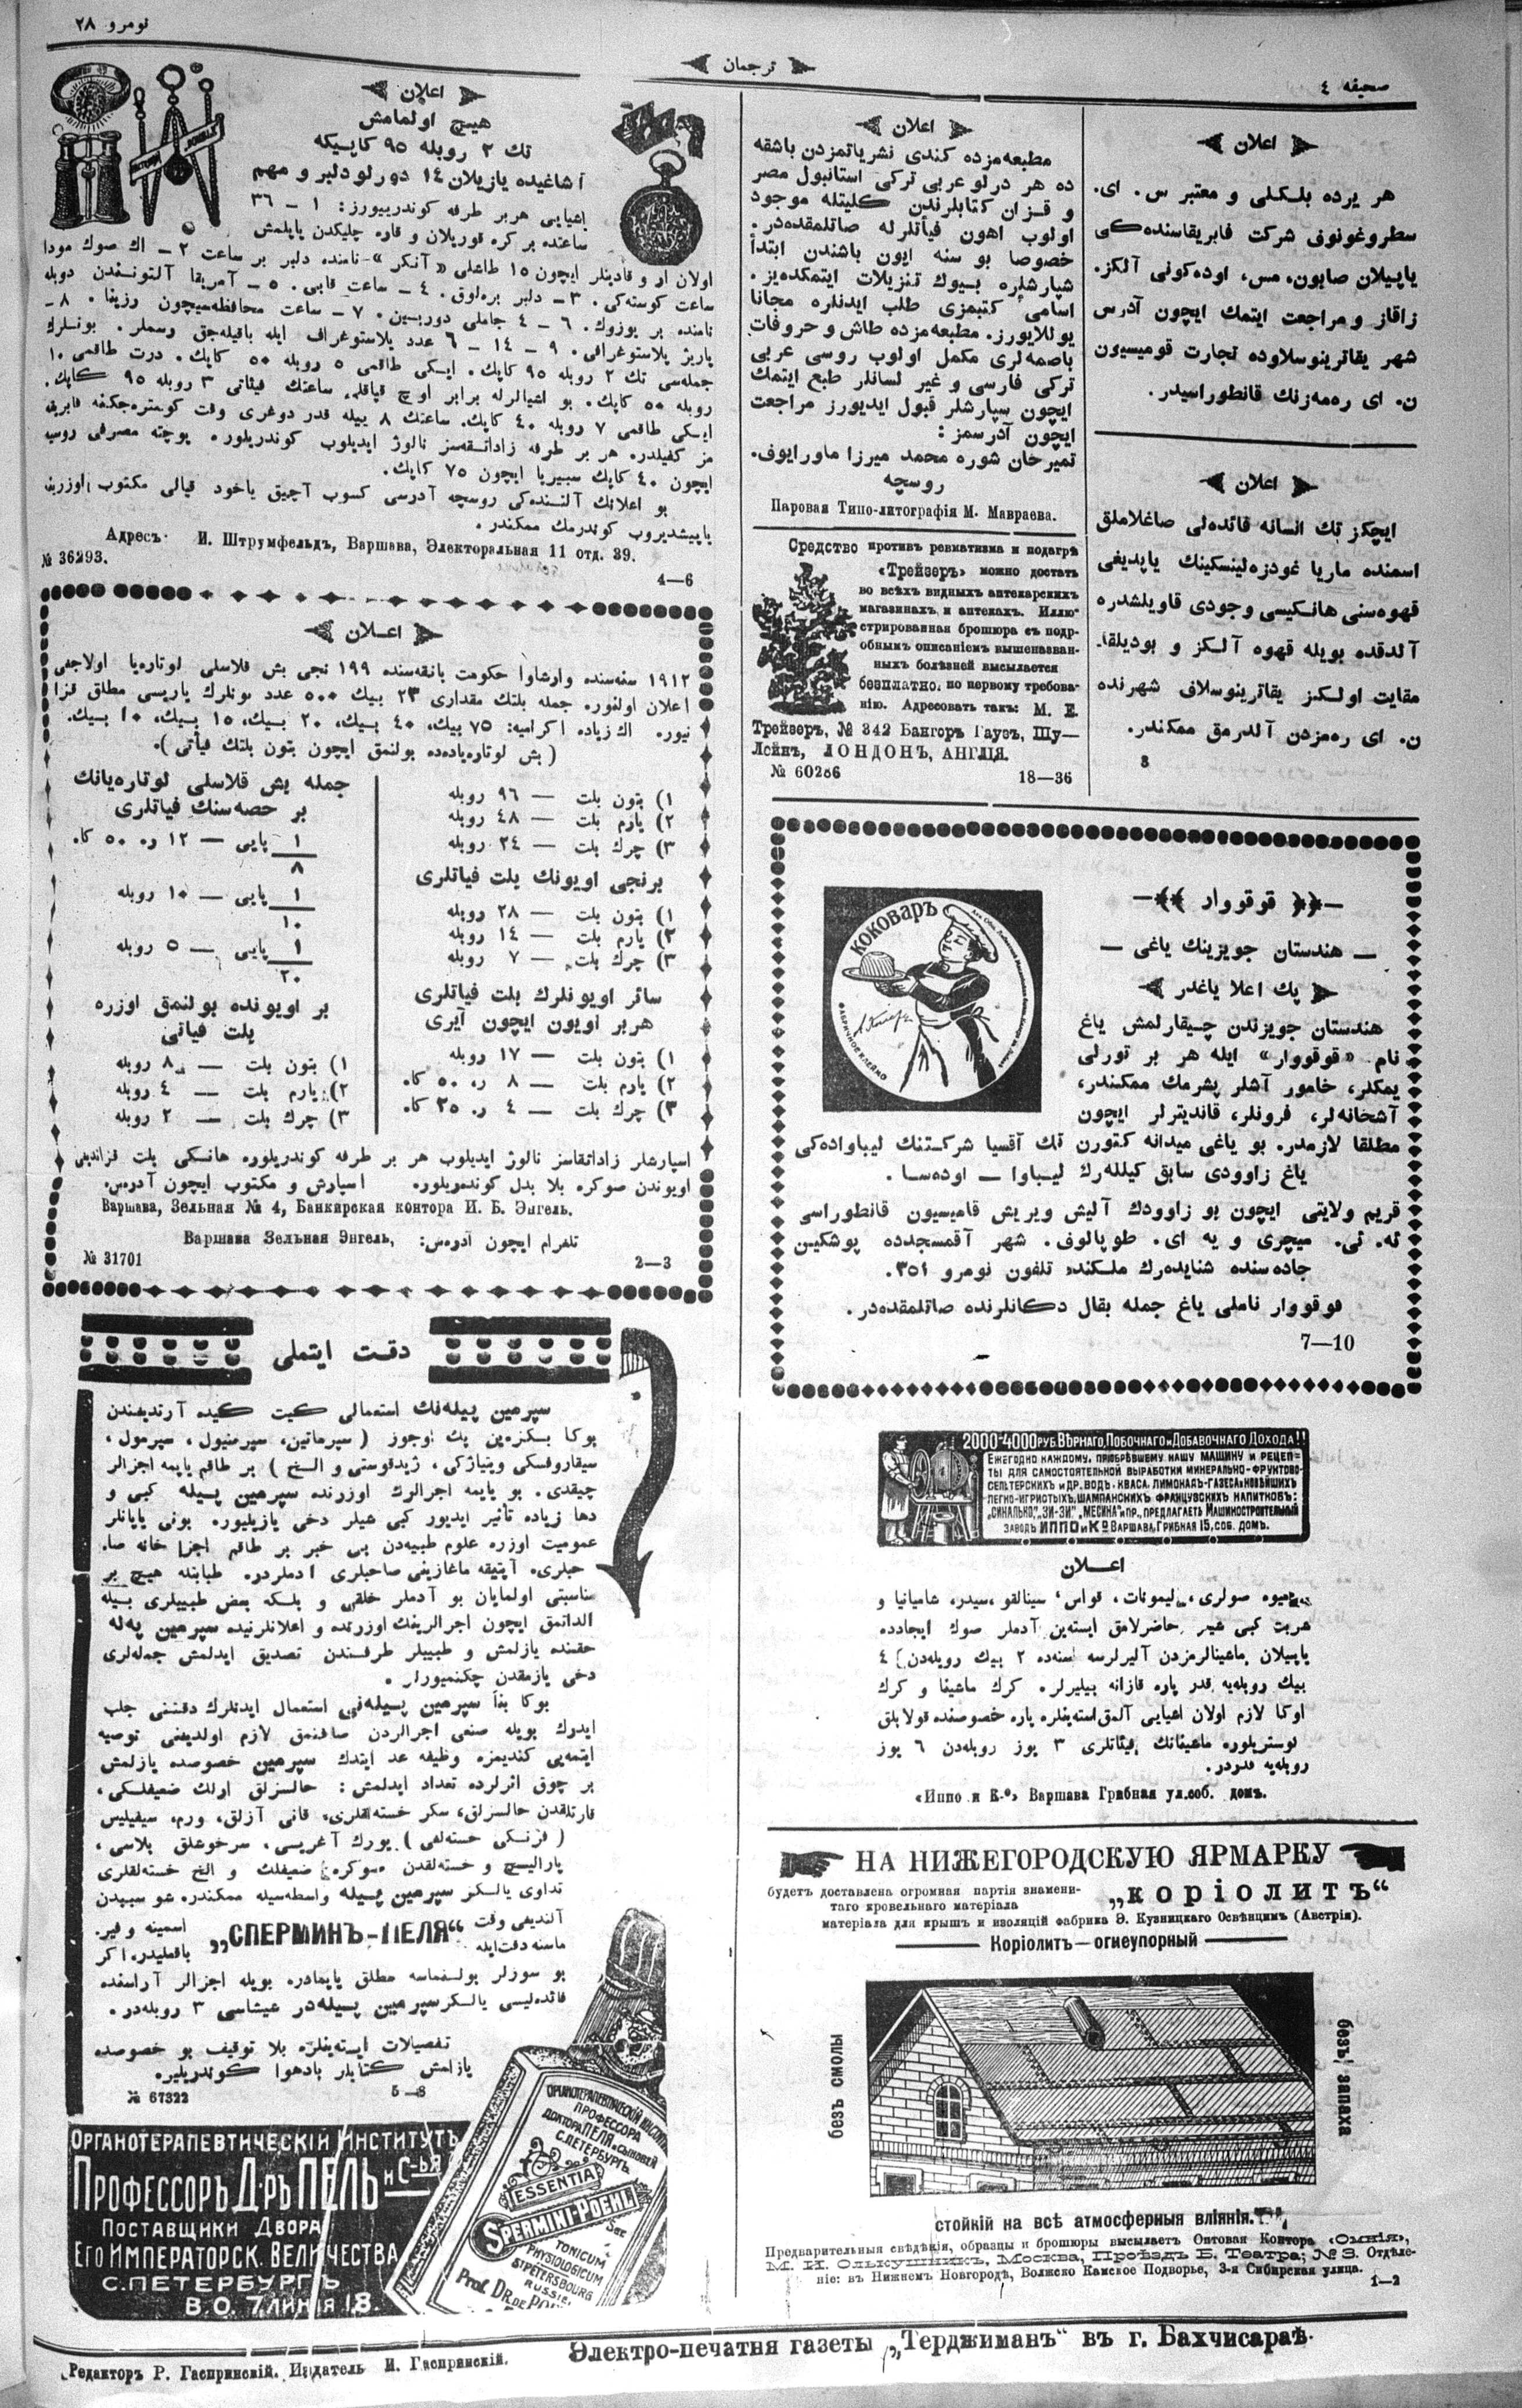 صحیفه ٤
ترجمان
نومرو ٢٨
اعلان
هر یرده بلکلی و معتبر س. ای.
سطروغونوف شرکت فابریقاسنده‌کی
یاپیلان صابون، مس، اوده‌کونی آلکز.
زاقاز و مراجعت ایتمك ایچون آدرس
شهر یقاترینوسلاوده تجارت قومیسیون
ن. ای ره‌مه‌زنك قانطوراسیدر.
اعلان
ایچکز تك انسانه فائده‌لی صاغلاملق
اسمنده ماریا غودزه‌لینسکینك یاپدیغی
قهوه‌سنی هانکیسی وجودی قاویلشدره
آلدقده بویله قهوه آلکز و بودیلقا.
مقایت اولکز یقاترینوسلاف شهرنده
ن. ای ره‌مزدن آلدرمق ممکندر.
8
اعلان
مطبعه‌مزده کندی نشریاتمزدن باشقه
ده هر درلو عربی ترکی استانبول مصر
و قزان کتابلرندن کلیتله موجود
اولوب اهون فیأتلرله صاتلمقده‌در.
خصوصا بو سنه ایون باشندن ابتدأ
شپارشلره بیوك تنزیلات ایتمکده‌یز.
اسامیء کتبمزی طلب ایدنلره مجانا
یوللایورز. مطبعه‌مزده طاش و حروفات
باصمه‌لری مکمل اولوب روسی عربی
ترکی فارسی و غیر لسانلر طبع ایتمك
ایچون سپارشلر قبول ایدیورز مراجعت
ایچون آدرسمز:
تمیرخان شوره محمد میرزا ماورایوف.
روسچه
Паровая Типо-литографія М. Мавраева.
Средство противъ ревматизма и подагры
«Трейзеръ» можно достать
во всѣхъ видныхъ аптекарскихъ
магазинахъ и аптекахъ. Иллю-
стрированная брошюра съ подр-
обнымъ описаніемъ вышеназван-
ныхъ болѣзней высылается
безплатно, по первому требова-
нію. Адресовать такъ: М. Е.
Трейзеръ, № 342 Бангоръ Гаузъ, Шу—
Лейнъ, ЛОНДОНЪ, АНГЛІЯ.
№ 60286 18—36
اعلان
هیچ اولمامش
تك ٢ روبله ٩٥ کاپیکه
آشاغیده یازیلان ١٤ دورلو دلبر و مهم
اشیایی هربر طرفه کوندریبورز: ١ – ٣٦
ساعتده بر کره قوریلان و قاره چلیکدن یاپلمش
اولان ار و قادینلر ایچون ١٥ طاعلی «آنکر»-نامنده دلبر بر ساعت ٢ – اك صوك مودا
ساعت کوسته‌کی. ٣– دلبر بره‌لوق. ٤ – ساعت قابی. ٥ – آمریقا آلتونندن دوبله
نامنده بر یوزوك. ٦ – ٤ جاملی دوربین. ٧ – ساعت محافظه‌سیچون رزینا. ٨–
پاریژ پلاستوغرافی. ٩ – ١٤ – ٦ عدد پلاستوغراف ایله باقیله‌جق رسملر. بونلرك
جمله‌سی تك ٢ روبله ٩٥ کاپك. ایکی طاقمی ٥ روبله ٥٠ کاپك. درت طاقمی ١٠
روبله ٥٠ کاپك. بو اشیالرله برابر اوچ قپاقلی ساعتك فیئاتی ٣ روبله ٩٥ کاپك.
ایکی طاقمی ٧ روبله ٤٠ کاپك. ساعتك ٨ ییله قدر دوغری وقت کوستره‌جکنه فابریقه
مز کفیلدر. هر بر طرفه زاداتقه‌سز نالوژ ایدیلوب کوندریلور. پوچته مصرفی روسیه
ایچون ٤٠ کاپك سیبریا ایچون ٧٥ کاپك.
بو اعلانك آلتنده‌کی روسچه آدرسی کسوب آچیق یاخود قپالی مکتوب اوزرینه
یاپیشدیروب کوندرمك ممکندر.
Адресъ: И. Штрумфельдъ, Варшава, Электоральная 11 отд. 39.
№ 36293.
4—6
اعلان
١٩١٢ سنه‌سنده وارشاوا حکومت بانقه‌سنده ١٩٩ نجی بش قلاسلی لوتاره‌یا اولاجغی
اعلان اولنور. جمله بلتك مقداری ٢٣ بیك ٥٠٠ عدد بونلرك یاریسی مطلق قزا
نیور. اك زیاده اکرامیه: ٧٥ بیك، ٤٠ بیك، ٢٠ بیك، ١٥ بیك، ١٠ بیك.
(بش لوتاره‌یاده‌ده بولنمق ایچون بتون بلتك فیأتی).
١) بتون بلت — ٩٦ روبله
٢) یارم بلت — ٤٨ روبله
٣) چرك بلت — ٢٤ روبله
برنجی اویونك بلت فیاتلری
١) بتون بلت — ٢٨ روبله
٢) یارم بلت — ١٤ روبله
٣) چرك بلت — ٧ روبله
سائر اویونلرك بلت فیاتلری
هربر اویون ایچون آیری
١) بتون بلت — ١٧ روبله
٢) یارم بلت — ٨ ر. ٥٠ کا.
٣) چرك بلت — ٤ ر. ٢٥ کا.
جمله بش قلاسلی لوتاره‌یانك
بر حصه‌سنك فیاتلری
١/٨ پایی — ١٢ ر. ٥٠ کا.
١/١٠ پایی — ١٠ روبله
١/٢٠ پایی — ٥ روبله
بر اویونده بولنمق اوزره
بلت فیاتی
١) بتون بلت — ٨ روبله
٢) یارم بلت — ٤ روبله
٣) چرك بلت — ٢ روبله
اسپارشلر زاداتقاسز نالوژ ایدیلوب هر بر طرفه کوندریلور. هانکی بلت قزاندیغی
اویوندن صوکره بلا بدل کوندریلور. اسپارش و مکتوب ایچون آدرس.
Варшава, Зельная № 4, Банкирская контора И. Б. Энгель.
تلغرام ایچون آدرس: Варшава Зельная Энгель,
№ 31701 2—3
قوقووار
— هندستان جویزینك یاغی —
پك اعلا یاغدر
هندستان جویزندن چیقارلمش یاغ
نام. «قوقووار» ایله هر بر تورلی
یمکلر، خامور آشلر پشرمك ممکندر،
آشخانه‌لر، فرونلر، قاندیترلر ایچون
مطلقا لازمدر. بو یاغی میدانه کتورن تك آقسیا شرکتنك لیباواده‌کی
یاغ زاوودی سابق کیلله‌رك لیباوا — اوده‌سا.
قریم ولایتی ایچون بو زاوودك آلیش ویریش قامیسیون قانطوراسی
ئه. ئی. میچری و یه ای. طوپالوف. شهر آقمسجدده پوشکین
جاده‌سنده شنایده‌رك ملکنده تلفون نومرو ٣٥١.
قوقووار ناملی یاغ جمله بقال دکانلرنده صاتلمقده‌در.
7—10
КОКОВАРЪ
ФАБРИЧНОЕ КЛЕЙМО
دقت ایتملی
سپرمین پیله‌نك استعمالی کیت کیده آرتدیغندن
بوکا بکزه‌ین پك اوجوز (سپرماتین، سپرمنیول، سپرمول،
چیقدی. بو یاپمه اجزالرك اوزرنده سپرمین پیله کبی و
دها زیاده تأثیر ایدیور کبی شیلر دخی یازیلیور. بونی یاپانلر
عمومیت اوزره علوم طبیه‌دن بی خبر بر طاقم اجزا خانه صا.
حبلری. آپتیقه ماغازینی صاحبلری آدملردر. طبابتله هیچ بر
مناسبتی اولمایان بو آدملر خلقی و بلکه بعض طبیبلری بیله
الداتمق ایچون اجزالرینك اوزرنده و اعلانلرنیده سپرمین په‌له
حقنده یازلمش و طبیبلر طرفندن تصدیق ایدلمش جمله‌لری
دخی یازمقدن چکنمیورلر.
بوکا بنأ سپرمین پیله‌نی استعمال ایدنلرك دقتنی جلب
ایدرك بویله صنعی اجزالردن صاقنمق لازم اولدیغنی توصیه
ایتمه‌یی کندیمزه وظیفه عد ایتدك سپرمین خصوصده یازلمش
بر چوق اثرلرده تعداد ایدلمش: حالسزلق اولك ضعیفلکی،
قارتلقدن حالسزلق، سکر خسته‌لقلری، قانی آزلق، ورم، سیفیلیس
پارالیچ و خسته‌لقدن صوکره ضعیفلك و الخ خسته‌لقلری
تداوی یالکز سپرمین پیله واسطه‌سیله ممکندر. شو سببدن
آلندیغی وقت „СПЕРМИНЪ-ПЕЛЯ“ اسمینه و فیر.
ماسنه دقت‌ایله باقملیدر. اکر
بو سوزلر بولنماسه مطلق یاپمادر. بویله اجزالر آراسنده
فائده‌لیسی یالکز سپرمین پیله‌در شیشاسی ٣ روبله‌در.
تفصیلات ایسته‌ینلره بلا توقیف بو خصوصده
یازلمش کتابلر بادهوا کوندریلیر.
№ 67322 5—8
ОРГАНОТЕРАПЕВТИЧЕСКІЙ ИНСТИТУТЪ
ПРОФЕССОРЪ Д-РЪ ПЕЛЬ и С-ья
ПОСТАВЩИКИ ДВОРА
ЕГО ИМПЕРАТОРСК. ВЕЛИЧЕСТВА
С.ПЕТЕРБУРГЪ
В.О. 7 ЛИНІЯ 18.
ОРГАНОТЕРАПЕВТИЧЕСКІЙ ИНСТИТ
ПРОФЕССОРА
ДОКТОРА ПЕЛЯ и СЫНОВЕЙ
С.ПЕТЕРБУРГЪ
ESSENTIA
SPERMINI-POEHL
TONICUM
PHYSIOLOGICUM
ST.PETERSBOURG
RUSSIE
Prof. DR. DE PO
2000-4000 РУБ. ВѢРНАГО, ПОБОЧНАГО и ДОБАВОЧНАГО ДОХОДА!!
ЕЖЕГОДНО КАЖДОМУ, ПРІОБРѢВШЕМУ НАШУ МАШИНУ И РЕЦЕП-
ТЫ ДЛЯ САМОСТОЯТЕЛЬНОЙ ВЫРАБОТКИ МИНЕРАЛЬНО-ФРУКТОВО-
СЕЛЬТЕРСКИХЪ И ДР. ВОДЪ, КВАСА, ЛИМОНАДЪ-ГАЗЕСА и НОВѢЙШИХЪ
ЛЕГКО-ИГРИСТЫХЪ, ШАМПАНСКИХЪ ФРАНЦУЗСКИХЪ НАПИТКОВЪ:
„СИНАЛЬКО“, „ЗИ-ЗИ“, „МЕСИНА“ и ПР., ПРЕДЛАГАЕТЪ МАШИНОСТРОИТЕЛЬНЫЙ
ЗАВОДЪ ИППО и К° ВАРШАВА, ГРИБНАЯ 15, СОБ. ДОМЪ.
اعلان
میوه صولری، لیمونات، قواس، سینالقو، سیدر، شامپانیا و
شربت کبی شیئر حاضرلامق ایسته‌ین آدملر صوك ایجادده
یاپیلان ماشینالرمزدن آلیرلرسه سنه‌ده ٢ بیك روبله‌دن ٤
بیك روبله‌یه قدر پاره قازانه بیلیرلر. کرك ماشینا و کرك
اوکا لازم اولان اشیایی آلمق‌استه‌ینلره پاره خصوصنده قولایلق
کوستریلور. ماشینانك فیئاتلری ٣ یوز روبله‌دن ٦ یوز
روبله‌یه قدردر.
«Иппо и К-°» Варшава Грибная ул. соб. домъ.
НА НИЖЕГОРОДСКУЮ ЯРМАРКУ
будетъ доставлена огромная партія знамени-
таго кровельнаго матеріала „коріолитъ“
матеріала для крышъ и изоляцій фабрика Э. Кузницкаго Освѣнцимъ (Австрія).
Коріолитъ—огнеупорный
безъ смолы
безъ запаха
стойкій на всѣ атмосферныя вліянія.
Предварительныя свѣдѣнія, образцы и брошюры высылаетъ Оптовая Контора «Омнія»,
М. И. Олькушникъ, Москва, Проѣздъ Б. Театра; № 3. Отдѣле-
ніе: въ Нижнемъ Новгородѣ, Волжско Камское Подворье, 3-я Сибирская улица.
1—2
Редакторъ Р. Гаспринскій. Издатель И. Гаспринскій.
Электро-печатня газеты „Терджиманъ“ въ г. Бахчисараѣ.